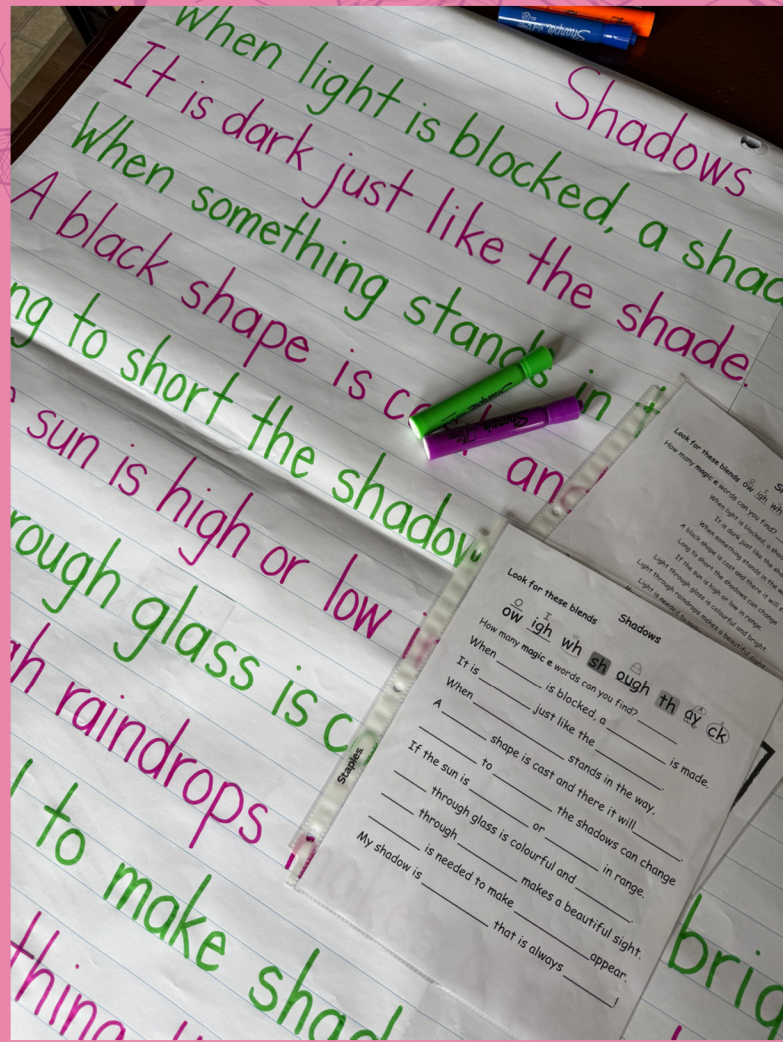 Shadows
When light is blocked, a shad
It is dark just like the shade.
When something stands in
A black shape is an
ng to short the shadow
sun is high or low
rough glass is c
gh raindrops
to make shad
thing
brig
Sharpie
Sharpie
Sharpie
Staples
Shadows
Look for these blends
ow igh wh sh ough th ay ck
How many magic e words can you find? ______
When ______ is blocked, a ______ is made.
It is ______ just like the ______.
When ______ stands in the way,
A ______ shape is cast and there it will ______.
______ to ______ the shadows can change
If the sun is ______ or ______ in range.
______ through glass is colourful and ______.
______ through ______ makes a beautiful sight.
______ is needed to make ______ appear.
My shadow is ______ that is always ______!
Look for these blends
ow igh wh
How many magic e words can you find?
When light is blocked, a
It is dark just like the
When something stands in the
A black shape is cast and there it will
Long to short the shadows can change
If the sun is high or low in range.
Light through glass is colourful and bright.
Light through raindrops makes a beautiful sight.
Light is needed to